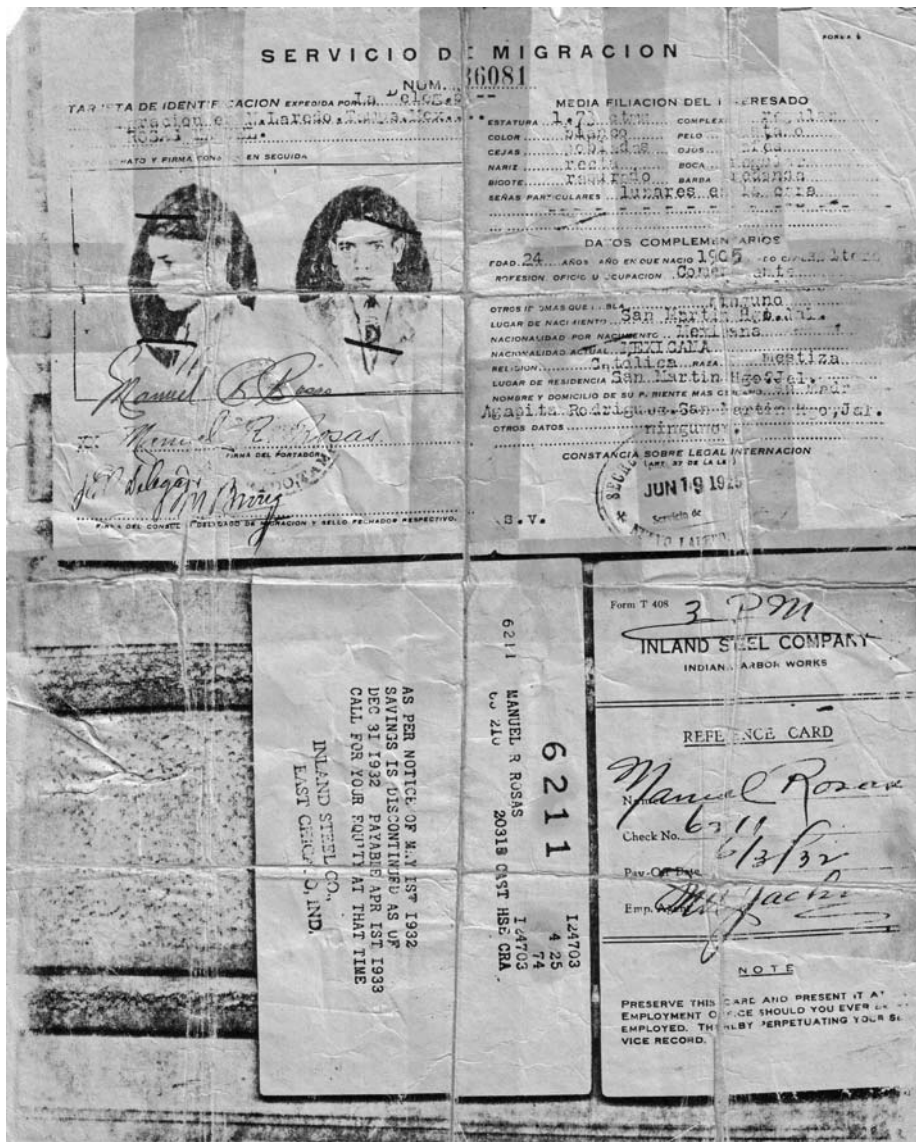 FORMA 6
SERVICIO DE MIGRACION
NUM. 36081
TARJETA DE IDENTIFICACION EXPEDIDA POR La
Laredo, Mex.
RETRATO Y FIRMA EN SEGUIDA
Manuel R Rosas
Manuel R. Rosas
FIRMA DEL PORTADOR
FIRMA DEL CONSUL DELEGADO DE MIGRACION Y SELLO FECHADOR RESPECTIVO.
MEDIA FILIACION DEL INTERESADO
ESTATURA 1.73 COMPLEX regular
COLOR blanco PELO
CEJAS pobladas OJOS
NARIZ recta BOCA regular
BIGOTE rasurado BARBA
SEÑAS PARTICULARES lunares en la cara
DATOS COMPLEMENTARIOS
EDAD 24 AÑOS AÑO EN QUE NACIO 1905
PROFESION, OFICIO U OCUPACION Comerciante
OTROS IDIOMAS QUE HABLA ninguno
LUGAR DE NACIMIENTO San Martin Hgo. Jal.
NACIONALIDAD POR NACIMIENTO Mexicana
NACIONALIDAD ACTUAL MEXICANA
RELIGION Catolica RAZA Mestiza
LUGAR DE RESIDENCIA San Martin Hgo, Jal.
NOMBRE Y DOMICILIO DE SU PARIENTE MAS CERCANO
Agapita Rodriguez-San Martin Hgo, Jal.
OTROS DATOS ninguno.
CONSTANCIA SOBRE LEGAL INTERNACION
(ART. 37 DE LA LEY)
JUN 19
Servicio de
S.V.
AS PER NOTICE OF MAY 1ST 1932
SAVINGS IS DISCONTINUED AS OF
DEC 31 1932 PAYABLE APR 1ST 1933
CALL FOR YOUR EQUITY AT THAT TIME
INLAND STEEL CO.,
EAST CHICAGO, IND.
6211
6211
MANUEL R ROSAS
20318 CAST HSE CRA
124703
4 25
74
124703
Form T 408
3 PM
INLAND STEEL COMPANY
INDIANA HARBOR WORKS
REFERENCE CARD
Name Manuel Rosas
Check No. 6211
Pay-Off Date 6/3/32
Emp. Agent
NOTE
PRESERVE THIS CARD AND PRESENT IT AT
EMPLOYMENT OFFICE SHOULD YOU EVER
EMPLOYED. THEREBY PERPETUATING YOUR SER-
VICE RECORD.